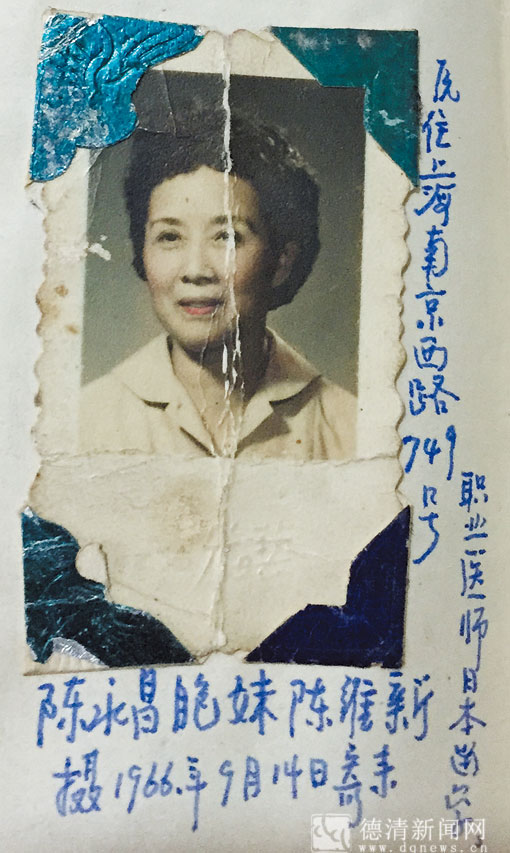 住上海南京西路
749号
职业医师日本
陈永昌胞妹陈维新
摄1966.年9月14日寄来
德清新闻网
www.dqnews.cn